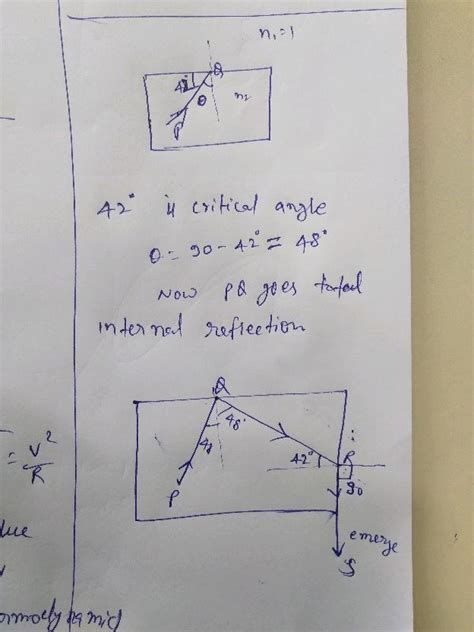 n₁=1
Q
42°
θ
n₂
P
42° is critical angle
θ = 90 - 42° = 48°
Now PQ goes total
internal reflection
Q
48
48°
P
42°
R
90
emerge
S
= V²/R